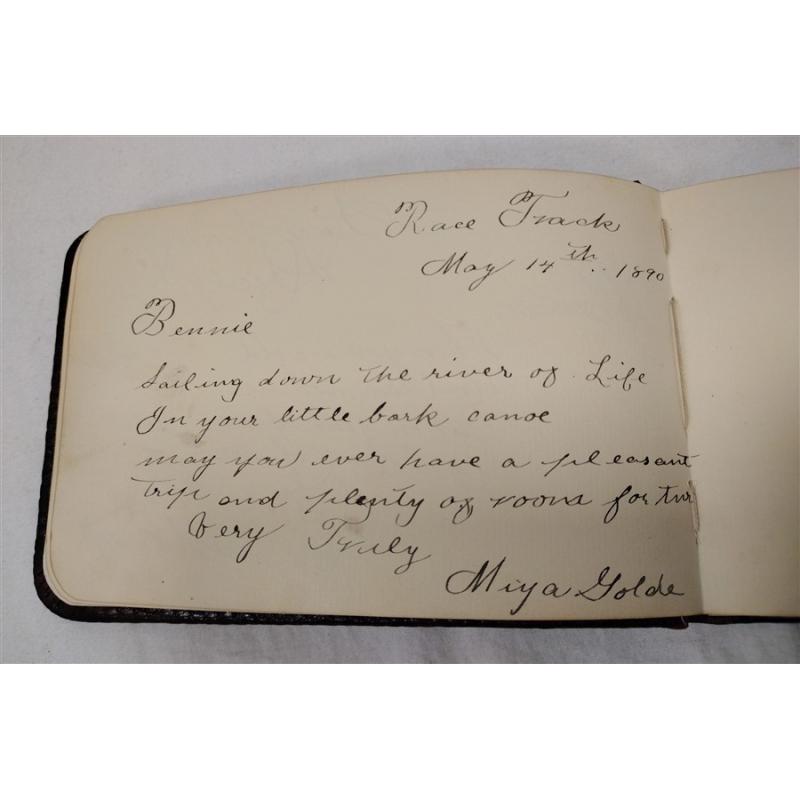 Race Track
May 14th.. 1890
Bennie
Sailing down the river of Life
In your little bark canoe
may you ever have a pleasant
trip and plenty of room for
Very Truly
Miya Golde